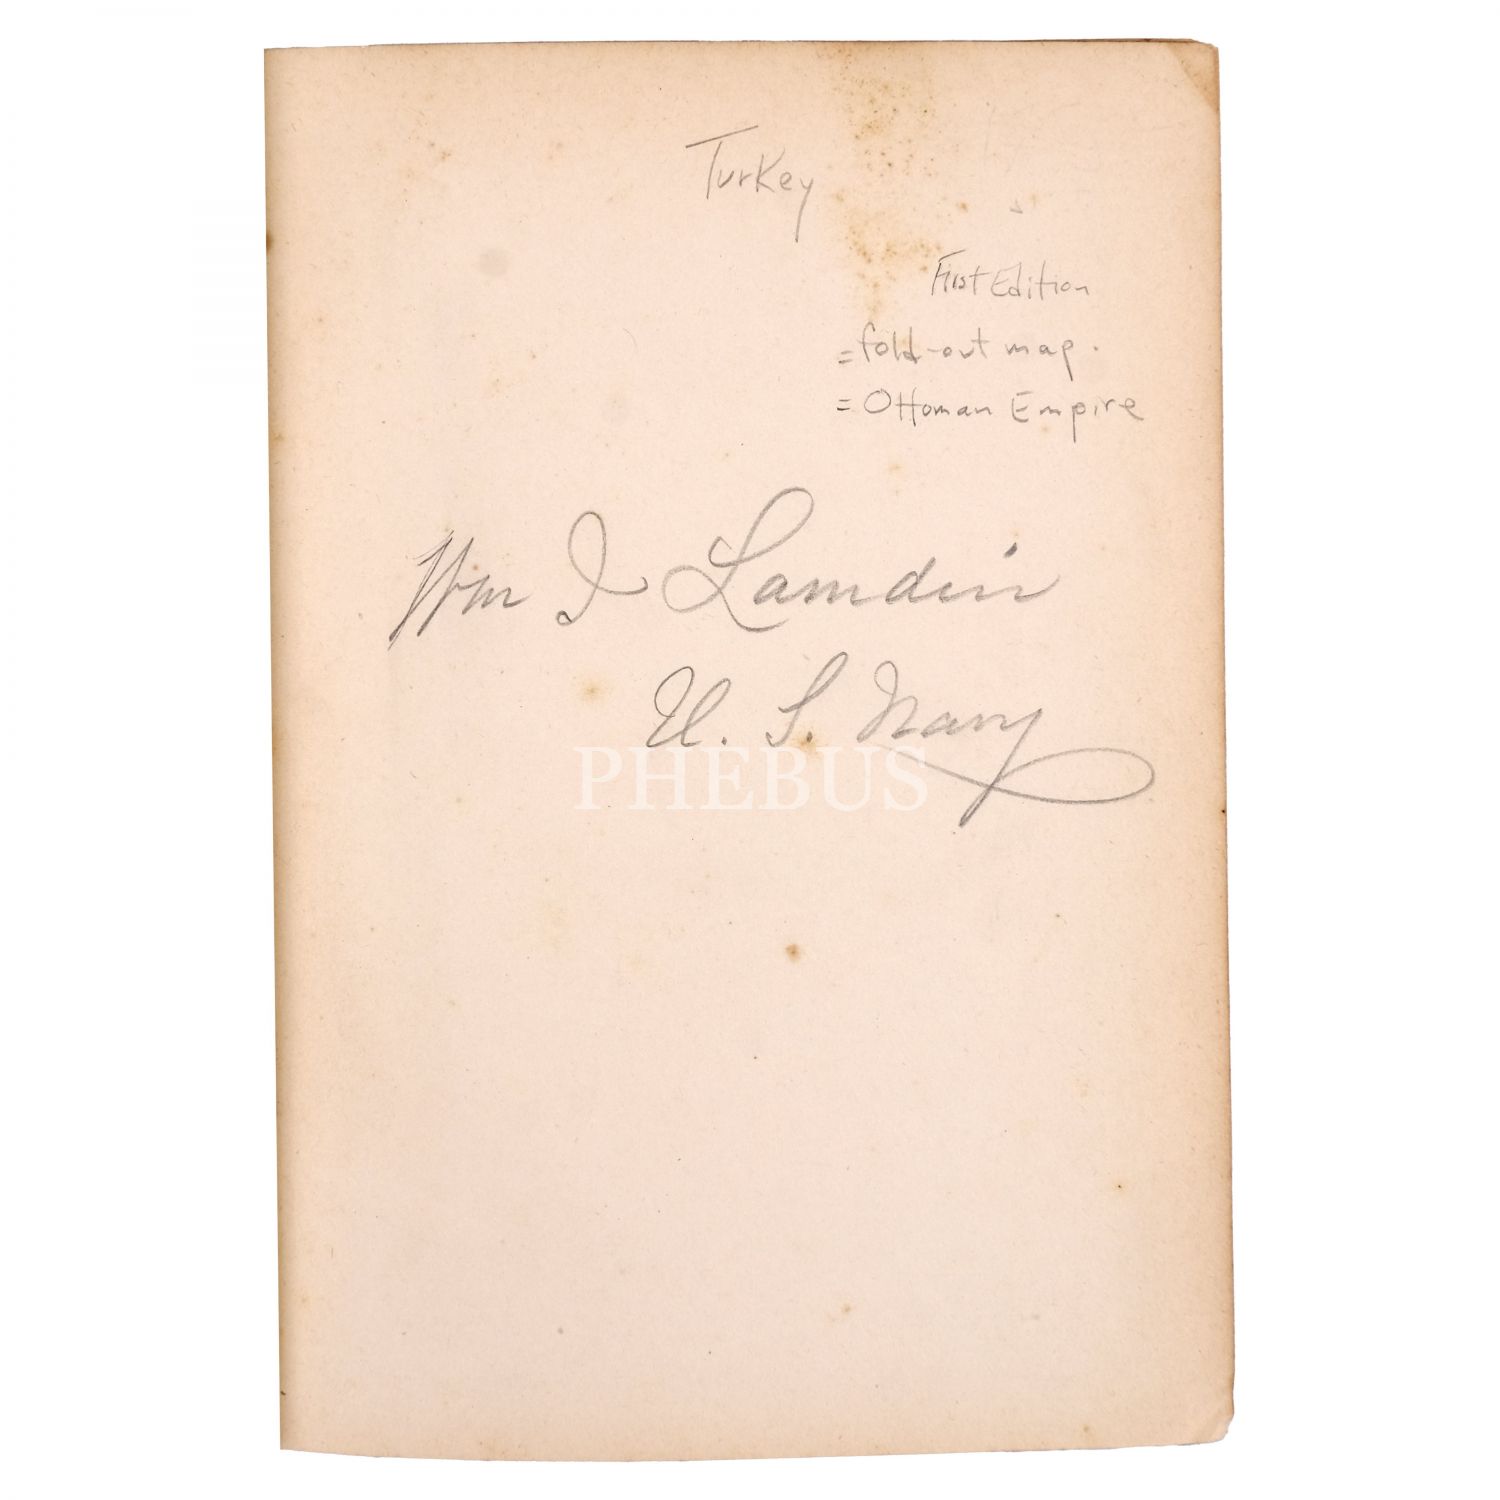 Turkey
First Edition
= fold-out map.
= Ottoman Empire
Wm J Lamdin
U. S. Navy
PHEBUS